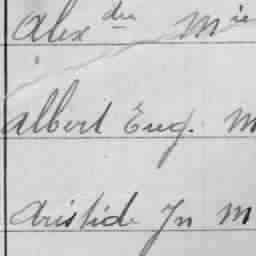 Alex dre Mie
Albert Eug. M
Aristide Jn M